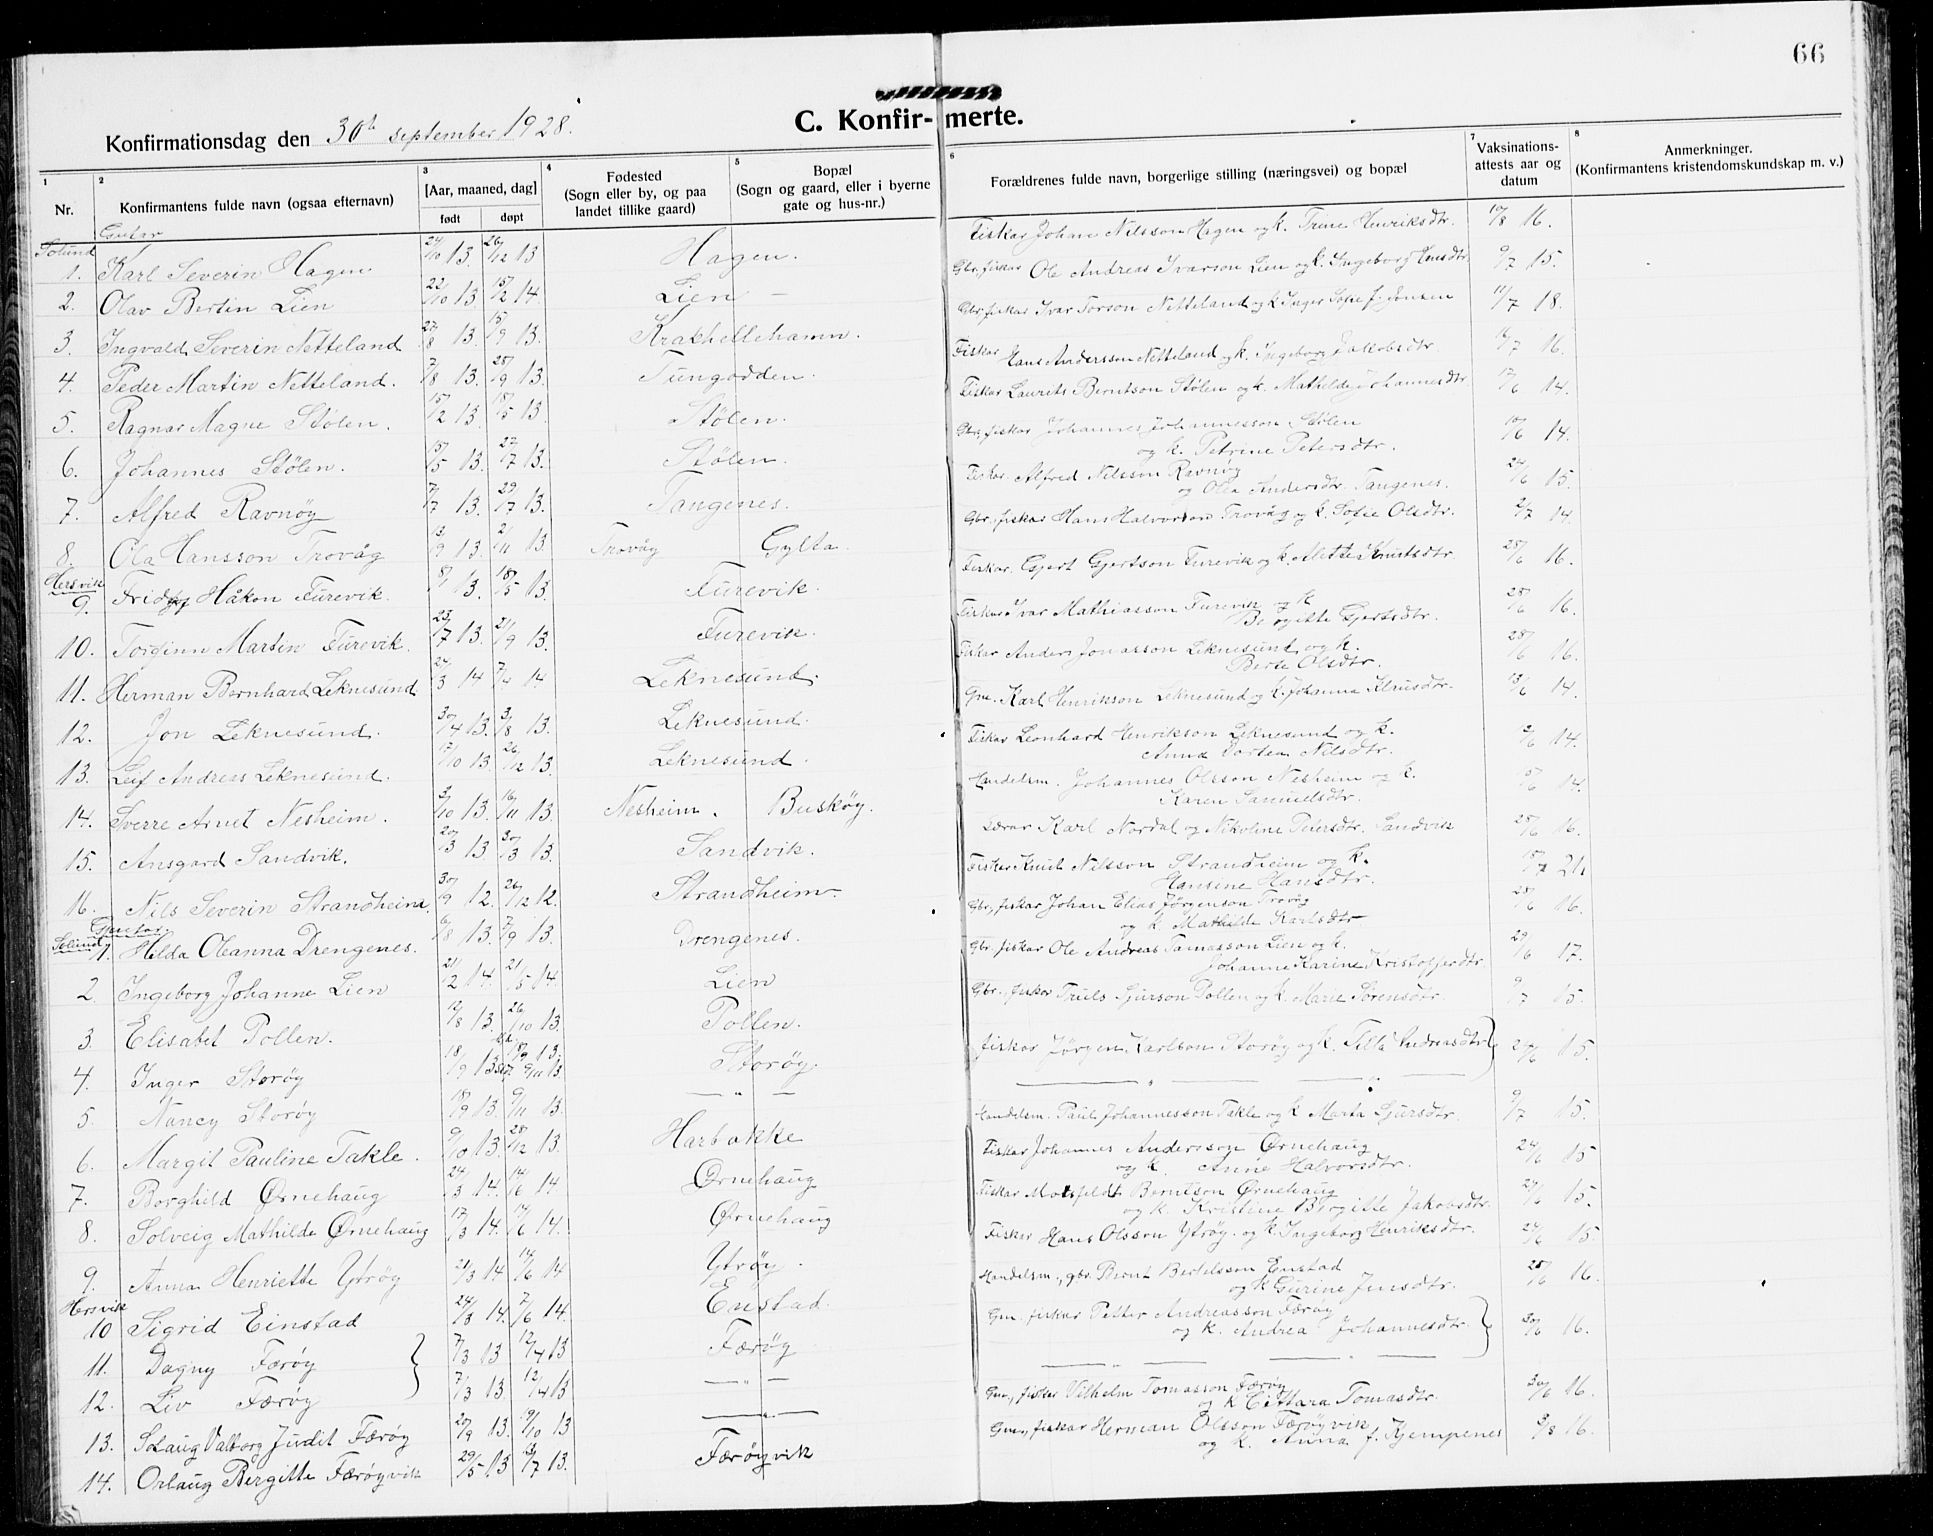 66
C. Konfirmerte.
Konfirmationsdag den 30te september 1928.
1 Nr.
2 Konfirmantens fulde navn (ogsaa efternavn)
3 [Aar, maaned, dag] født døpt
4 Fødested (Sogn eller by, og paa landet tillike gaard)
5 Bopæl (Sogn og gaard, eller i byerne gate og hus-nr.)
6 Forældrenes fulde navn, borgerlige stilling (næringsvei) og bopæl
7 Vaksinations-attests aar og datum
8 Anmerkninger. (Konfirmantens kristendomskundskap m. v.)
Solund Gutar
1. Karl Severin Hagen 24/10 13. 26/12 13 Hagen. Fiskar Johan Nilsson Hagen og k. Trine Henriksdtr. 10/8 16.
2. Olav Bertin Lien 22/10 13 15/2 14. Lien — Gbr, fiskar Ole Andreas Ivarson Lien og k. Ingeborg Hansdtr 9/7 15.
3. Ingvald Severin Netteland 13. 15/9 13. Krakhellehamn. Gbr, fiskar Ivar Torson Netteland og k Inger Sofie f. Jonsen 11/7 18.
4. Peder Martin Netteland. 7/8 13. 28/9 13. Tungodden. Fiskar Hans Andersson Netteland og k. Ingeborg Jakobsdtr. 16.
5. Ragnar Magne Stølen. 15/2 13. 18/5 13 Stølen. Fiskar Laurits Berntson Stølen og k. Mathilde Johannesdtr 14.
6. Johannes Stølen. 15/5 13. 27/7 13. Stølen. Gbr, fiskar Johannes Johannesson Stølen og k. Petrine Petersdtr. 14.
7. Alfred Ravnøy 7/7 13. 29/7 13. Tangenes. Fiskar. Alfred Nilsson Ravnøy og Ola Andersdtr. Tangenes. 24/6 15.
8. Ola Hansson Trovåg 13/9 13. 2/11 13. Trovåg Gylta. Gbr, fiskar Hans Halvorson Trovåg og k. Sofie Olsdtr. 2/7 14.
Hersvik
9. Fridtjof Håkon Furevik. 13. 18/5 13. Furevik. Fiskar. Gjert Gjertson Furevik og k. Alette Knutsdtr 28/6 16.
10. Torfinn Martin Furevik. 23/7 13. 21/9 13. Furevik. Fiskar Ivar Mathiasson Furevik og k Birgitte Gjertsdtr. 28/6 16.
11. Herman Bernhard Leknesund 24/3 14 7/4 14. Leknesund. Fiskar Anders Jonasson Leknesund og k. Berte Olsdtr. 28/6 16.
12. Jon Leknesund. 30/4 13. 3/8 13. Leknesund. Gm. Karl Henrikson Leknesund og k. Johanna Klausdtr. 18/6 14.
13. Leif Andreas Leknesund. 17/10 13. 26/12 13. Leknesund. Fiskar Leonhard Henrikson Leknesund og k. Anna Dortea Nilsdtr. 14.
14. Sverre Arnet Nesheim. 3/10 13. 16/11 13. Nesheim. Buskøy. Handelsm. Johannes Olsson Nesheim og k. Karen Samuelsdtr. 14.
15. Ansgard Sandvik. 20/3 13 30/3 13. Sandvik. Lærar Karl Nordal og Nikoline Petersdtr. Sandvik 28/6 16.
16. Nils Severin Strandheim. 30/9 12. 26/12 12. Strandheim Fiskar Knut Nilsson Strandheim og k. Hansine Hansdtr. 21.
Solund Gjentor
1. Hilda Oleanna Drengenes. 6/8 13. 7/9 13. Drengenes. Gbr, fiskar Johan Elias Jørgenson Trovåg og k. Mathilde Karlsdtr 28/6 16.
2. Ingeborg Johanne Lien 21/2 14. 21/5 14. Lien Gbr. fiskar Ole Andreas Tomasson Lien og k. Johanne Karine Kristofferdtr. 29/6 17.
3. Elisabet Pollen. 12/8 13. 26/10 13. Pollen. Gbr., fiskar Truls Sjurson Pollen og k. Marie Sørensdtr. 9/7 15.
4. Inger Storøy 18/9 13 9/11 13. Storøy. fiskar Jørgen Karlson Storøy og k. Tilla Andreasdtr } 24/6 15.
5. Nancy Storøy 18/9 13. 9/11 13. — " — — " — — " —
6. Margit Pauline Takle. 9/10 13. 28/12 13. Harbakke Handelsm. Paul Johannesson Takle og k Marta Sjursdtr. 9/7 15.
7. Borghild Ørnehaug 24/3 14. 14/6 14 Ørnehaug Fiskar Johannes Andersson Ørnehaug og k. Anne Halvorsdtr. 24/6 15
8. Solveig Mathilde Ørnehaug 17/3 14. 14/6 14. Ørnehaug Fiskar Motsfeldt Berntson Ørnehaug og k. Kristine Birgitte Jakobsdtr. 24/6 15.
9. Anna Henriette Ytrøy 21/3 14 14/6 14 Ytrøy. Fiskar Hans Olsson Ytrøy og k. Ingeborg Henriksdtr. 24/6 15.
Hersvik
10 Sigrid Einstad 24/3 14. 7/6 14. Enstad. Handelsm., gbr. Bernt Bertelsson Enstad og k Gurine Jensdtr. 28/6 16.
11. Dagny Færøy } 7/3 13 12/4 13 Færøy Gm, fiskar Petter Andreasson Færøy og k. Andrea Johannesdtr. } 30/6 16.
12. Liv Færøy 7/3 13. 12/4 13 — " — — " — — " —
13. Solaug Valborg Judit Færøy 20/9 13. 19/10 13 — " — Gm, fiskar Vilhelm Tomasson Færøy og k Cittara Tomasdtr. 30/6 16.
14. Orlaug Bergitte Færøyvik 29/5 13 13. Færøyvik Gm, fiskar Herman Olsson Færøyvik og k. Anna f. Kjempenes 16.